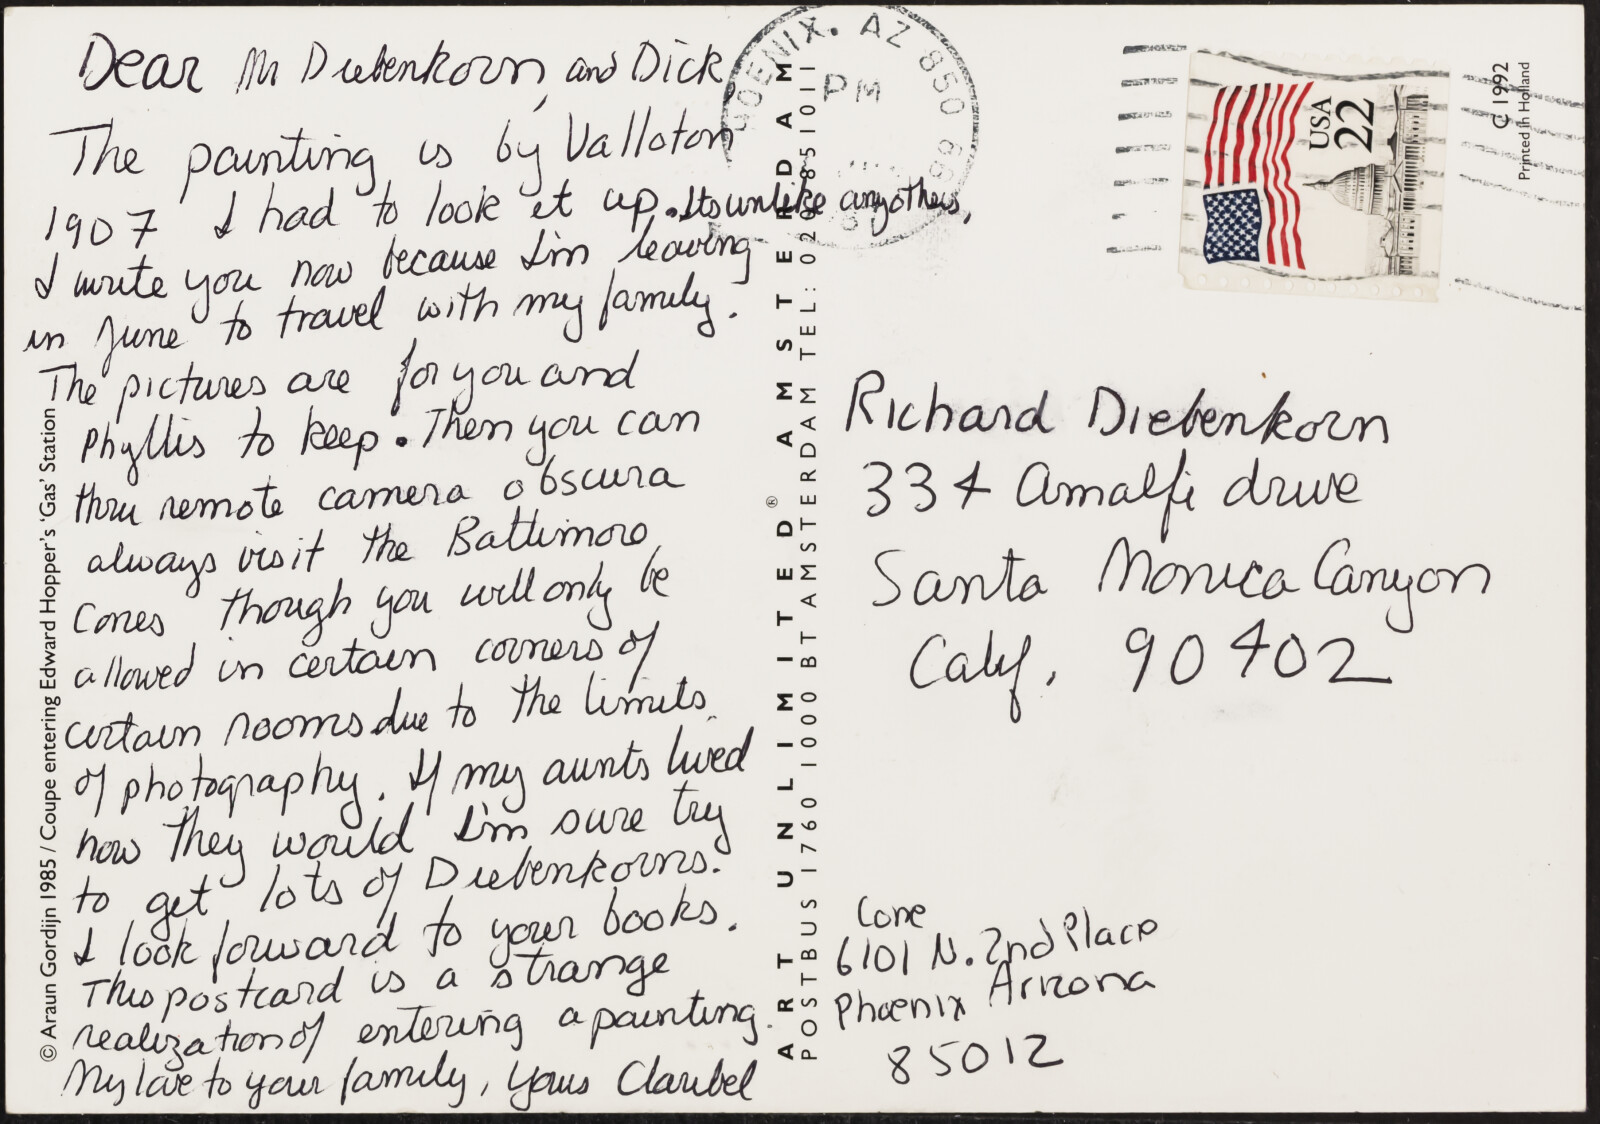 Dear Mr Diebenkorn, and Dick
The painting is by Valloton
1907 I had to look it up. Its unlike any others,
I write you now because I'm leaving
in June to travel with my family.
The pictures are for you and
Phyllis to keep. Then you can
thru remote camera obscura
always visit the Baltimore
Cones though you will only be
allowed in certain corners of
certain rooms due to the limits
of photography. If my aunts lived
now they would I'm sure try
to get lots of Diebenkorns.
I look forward to your books.
This postcard is a strange
realization of entering a painting.
My love to your family, Yours Claribel
© Araun Gordijn 1985 / Coupe entering Edward Hopper's 'Gas' Station
ART UNLIMITED® AMSTERDAM
POSTBUS 1760 1000 BT AMSTERDAM TEL: 020 851011
PHOENIX, AZ 850
PM
USA
22
C 1992
Printed in Holland
Richard Diebenkorn
334 Amalfi drive
Santa Monica Canyon
Calif. 90402
Cone
6101 N. 2nd Place
Phoenix Arizona
85012